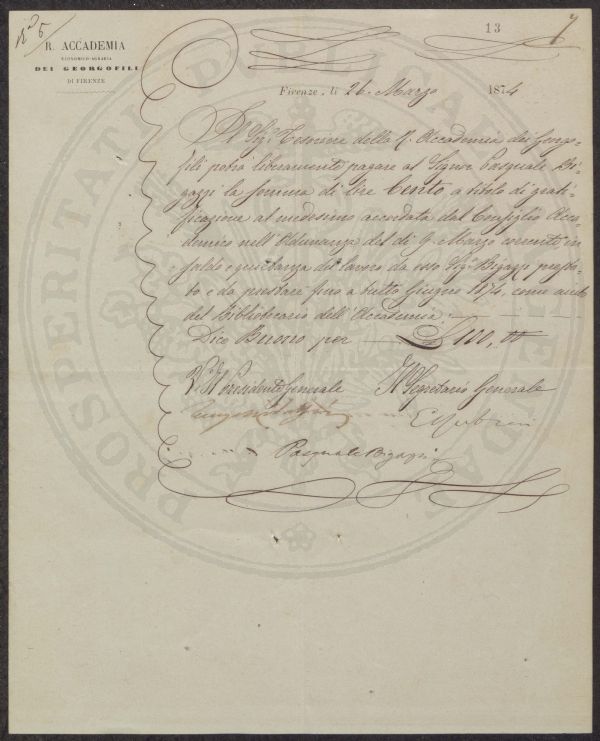 N° 5
13
7
R. ACCADEMIA
ECONOMICO-AGRARIA
DEI GEORGOFILI
DI FIRENZE
Firenze, li 26. Marzo 1874
Il Sig.r Tesoriere della R. Accademia dei Georgo-
fili potrà liberamente pagare al Signor Pasquale Bi-
gazzi la somma di lire Cento a titolo di grati-
ficazione al medesimo accordata dal Consiglio Acca-
demico nell'Adunanza del dì 9. Marzo corrente in
saldo e quietanza del lavoro da esso Sig.r Bigazzi presta-
to e da prestare fino a tutto Giugno 1874, come
del Bibliotecario dell'Accademia.
Dico Buono per £ 100,00
V. Il Presidente Generale Il Segretario Generale
Pasquale Bigazzi
PROSPERITATI PUBLICAE AUGENDAE